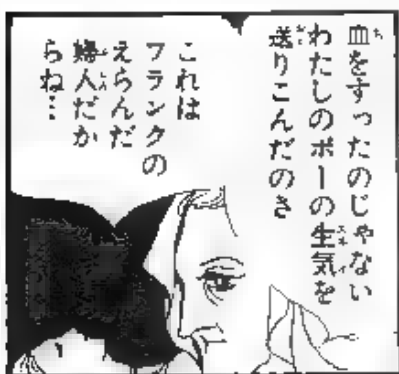 血をすったのじゃない
わたしのポーの生気を
送りこんだのさ
これは
フランクの
えらんだ
婦人だか
らね…